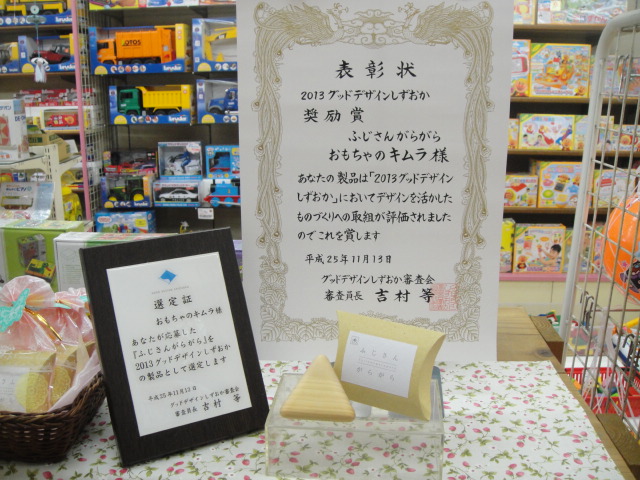 表彰状
2013グッドデザインしずおか
奨励賞
ふじさんがらがら
おもちゃのキムラ様
あなたの製品は「2013グッドデザイン
しずおか」においてデザインを活かした
ものづくりへの取組が評価されました
のでこれを賞します
平成25年11月13日
グッドデザインしずおか審査会
審査員長 吉村 等
選定証
おもちゃのキムラ様
あなたが応募した
『ふじさんがらがら』を
2013グッドデザインしずおか
の製品として選定します
平成25年11月13日
グッドデザインしずおか審査会
審査員長 吉村 等
ふじさん
がらがら
bruder